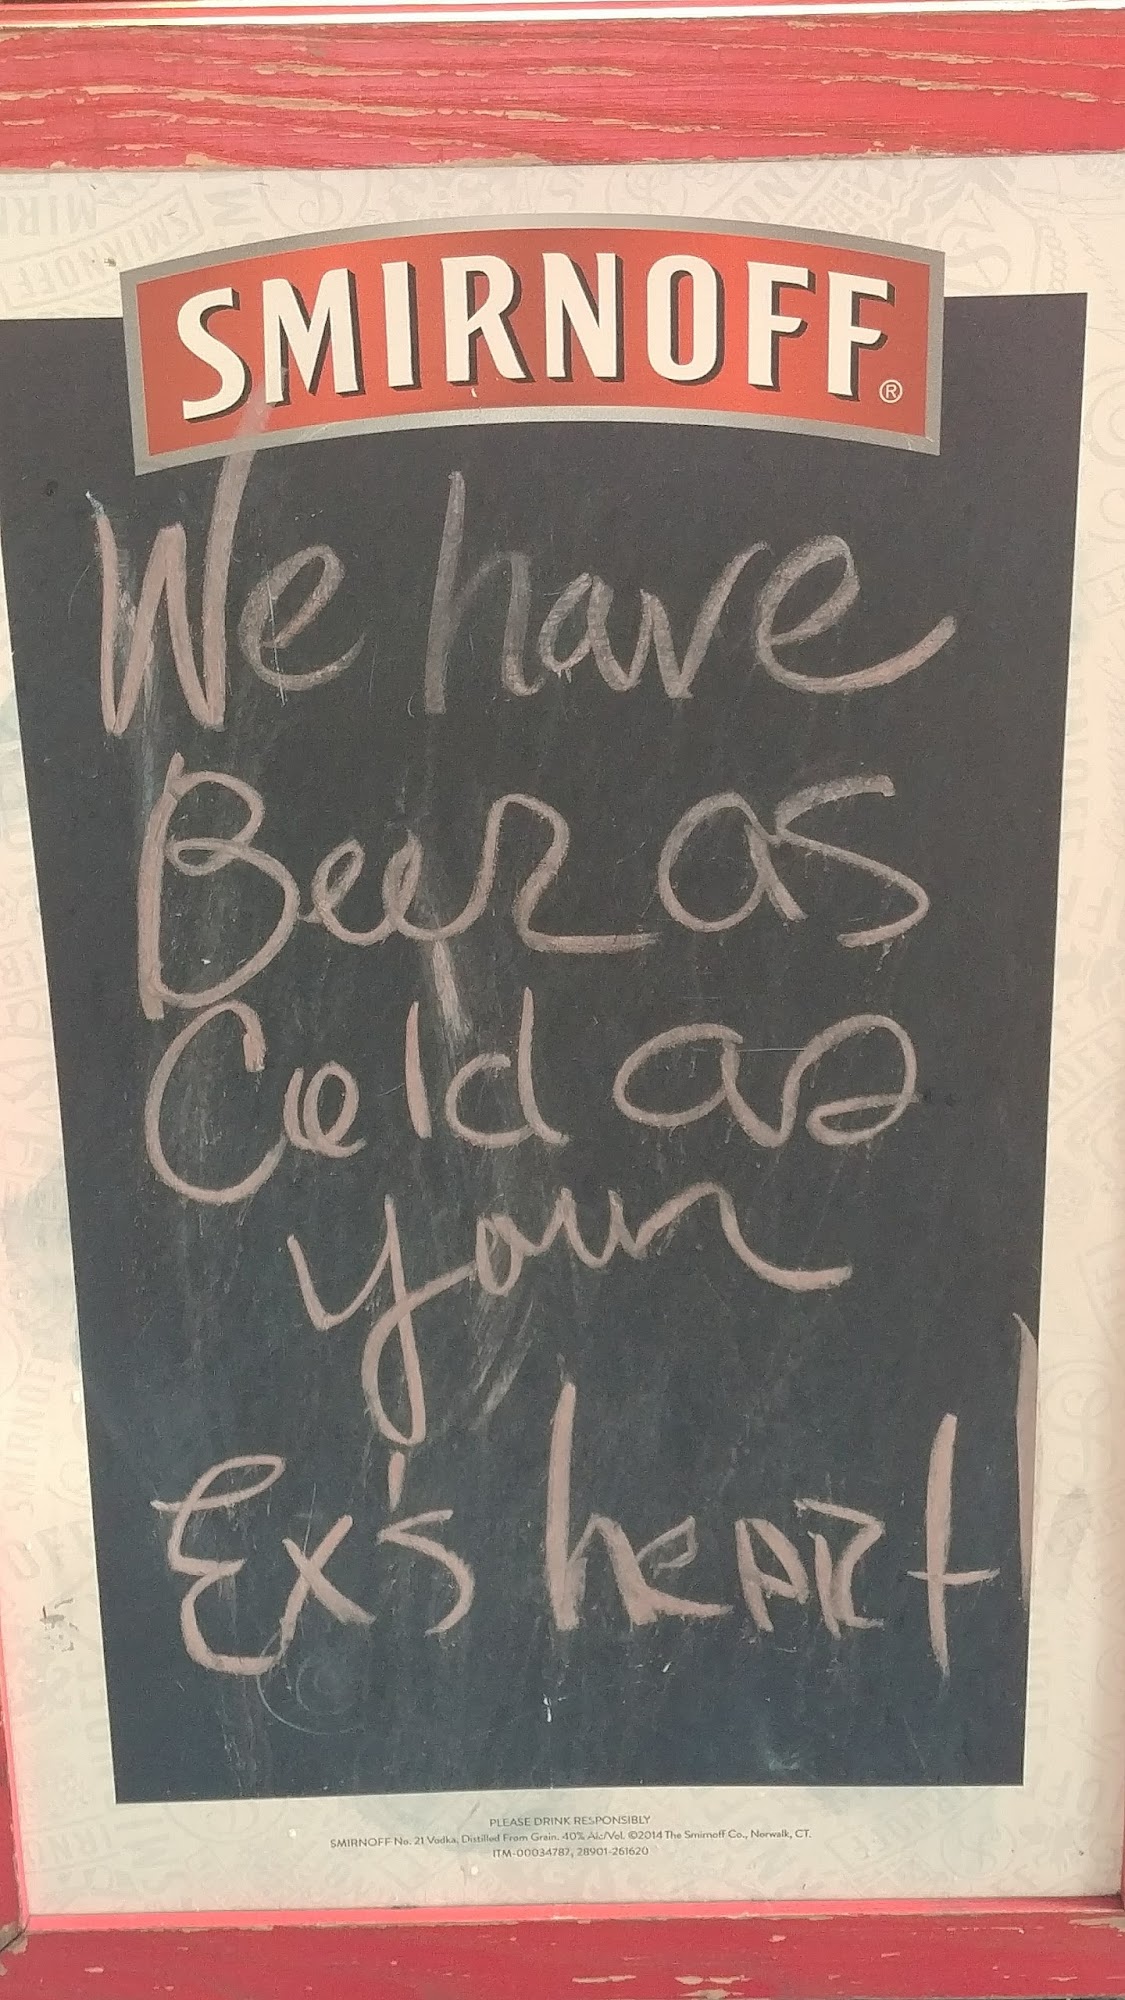 SMIRNOFF®
We have
Beer as
Cold as
your
Ex's heART
PLEASE DRINK RESPONSIBLY
SMIRNOFF No. 21 Vodka, Distilled From Grain. 40% Alc/Vol. ©2014 The Smirnoff Co., Norwalk, CT.
ITM-00034787, 28901-261620